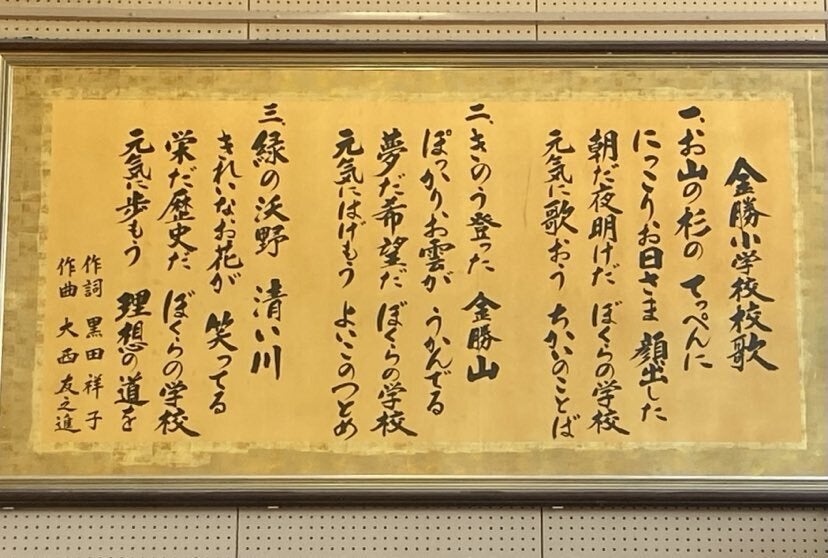 金勝小学校校歌
一、お山の杉の てっぺんに
にっこりお日さま 顔出した
朝だ夜明けだ ぼくらの学校
元気に歌おう ちかいのことば
二、きのう登った 金勝山
ぽっかりお雲が うかんでる
夢だ希望だ ぼくらの学校
元気にはげもう よいこのつとめ
三、緑の沃野 清い川
きれいなお花が 笑ってる
栄だ歴史だ ぼくらの学校
元気に歩もう 理想の道を
作詞 黒田祥子
作曲 大西友之進